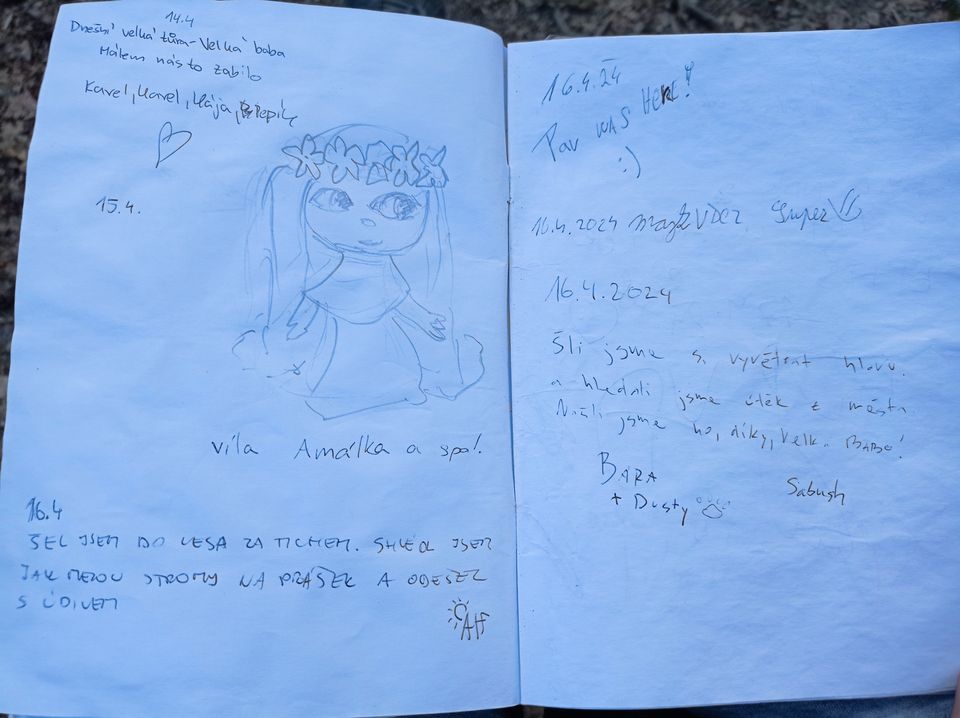 14.4
Dnešní velká túra - Velká baba
Málem nás to zabilo
Karel, Karel, Mája, Pepík
15.4.
víla Amálka a spol.
16.4
ŠEL JSEM DO LESA ZA TICHEM. SHLÉDL JSEM
JAK MELOU STROMY NA PRÁŠEK A ODEŠEL
S ÚDIVEM
AH
16.4.24
Pav WAS HERE!
:)
16.4.2024 super
16.4.2024
Šli jsme si vyvětrat hlavu
a hledali jsme útěk z města.
Našli jsme ho, díky, Velká BABO!
BARA
+ Dusty
Sabush